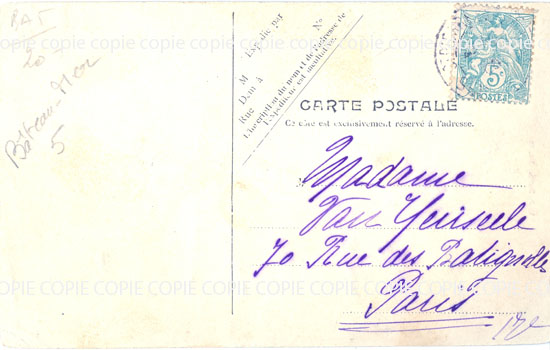 BAT
20
Bateau-Mer
5
Expédié par
No
M
Dem à
Rue
L'inscription du nom et de l'adresse de
l'expéditeur est facultative.
5c
POSTES
CARTE POSTALE
Ce côté est exclusivement réservé à l'adresse.
Madame
Van
70 Rue des Batignolles
Paris
COPIE COPIE COPIE COPIE COPIE COPIE COPIE COPIE
COPIE COPIE COPIE COPIE COPIE COPIE COPIE COPIE